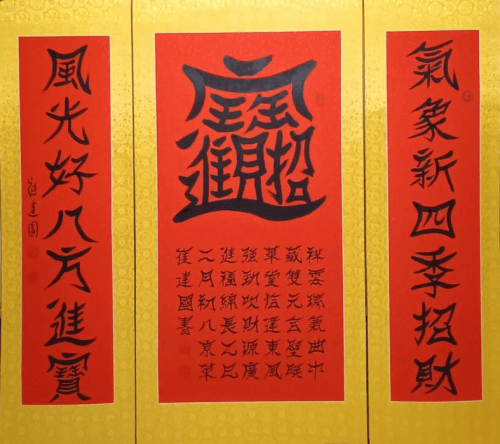 氣象新四季招財
招財進寶
祥雲瑞氣曲中
藏雙元璧聯
華堂信達東風
強勁吹財源廣
進福綿長乙巳
二月初八京華
崔建國書
風光好八方進寶
崔建國